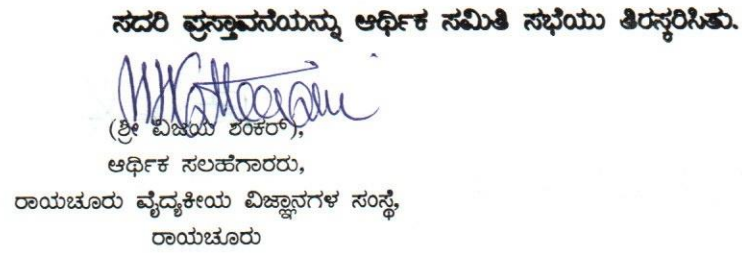 ಸದರಿ ಪ್ರಸ್ತಾವನೆಯನ್ನು ಆರ್ಥಿಕ ಸಮಿತಿ ಸಭೆಯು ತಿರಸ್ಕರಿಸಿತು.
(ಶ್ರೀ ವಿಜಯ ಶಂಕರ್),
ಆರ್ಥಿಕ ಸಲಹೆಗಾರರು,
ರಾಯಚೂರು ವೈದ್ಯಕೀಯ ವಿಜ್ಞಾನಗಳ ಸಂಸ್ಥೆ,
ರಾಯಚೂರು